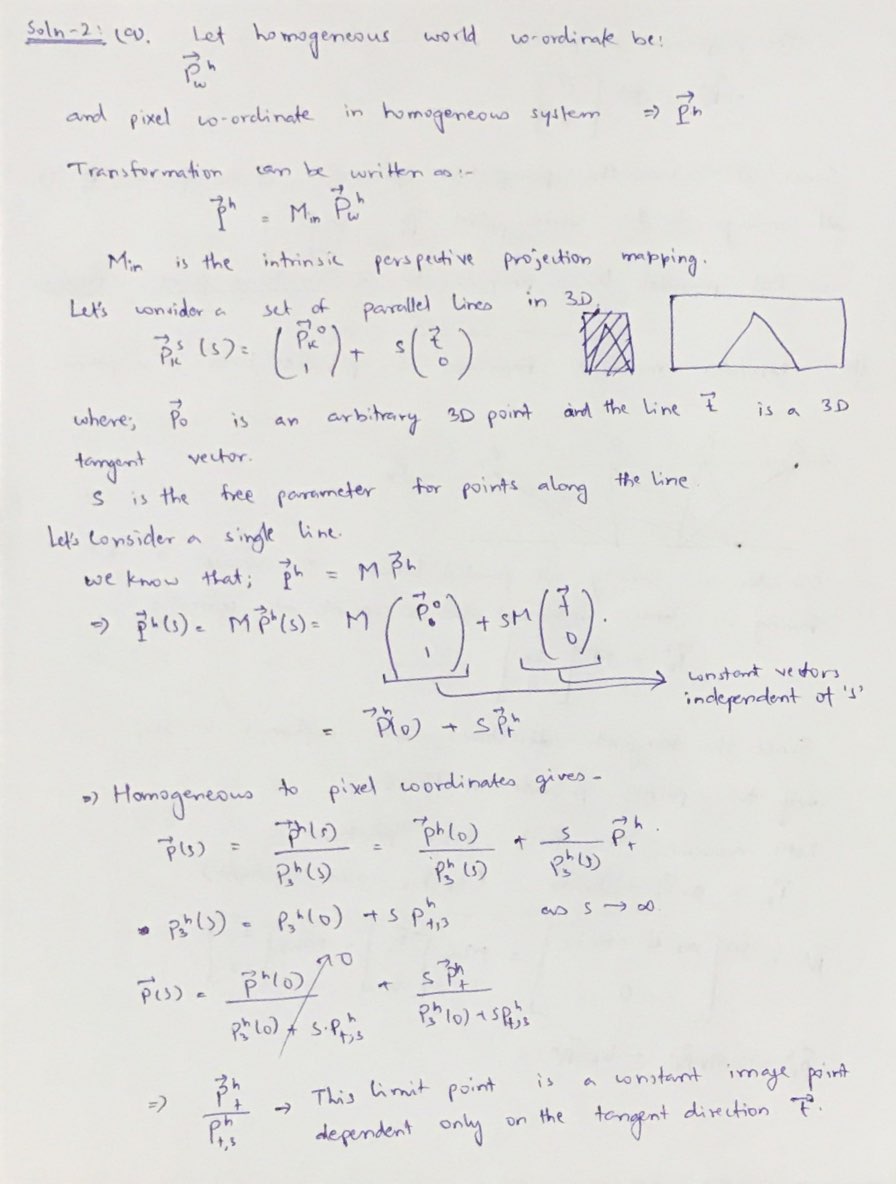 Soln-2: (a). Let homogeneous world co-ordinate be:
P⃗_w^h
and pixel co-ordinate in homogeneous system ⇒ p⃗^h
Transformation can be written as :-
p⃗^h = M_in P⃗_w^h
M_in is the intrinsic perspective projection mapping.
Let's consider a set of parallel lines in 3D.
P⃗_k^s (s) = (P⃗_k^0 ; 1) + s (t⃗ ; 0)
where; P⃗_0 is an arbitrary 3D point and the line t⃗ is a 3D
tangent vector.
s is the free parameter for points along the line.
Let's consider a single line.
we know that; p⃗^h = M P⃗^h
⇒ p⃗^h(s) = M P⃗^h(s) = M (P⃗_0^0 ; 1) + sM (t⃗ ; 0).
constant vectors
independent of 's'
= p⃗^h(0) + s p⃗_t^h
⇒ Homogeneous to pixel coordinates gives -
p⃗(s) = p⃗^h(s) / p_3^h(s) = p⃗^h(0) / p_3^h(s) + s / p_3^h(s) p⃗_t^h.
• p_3^h(s) = p_3^h(0) + s p_{t,3}^h as s → ∞
p⃗(s) = p⃗^h(0) / (p_3^h(0) + s.p_{t,3}^h) ↗0 + s p⃗_t^h / (p_3^h(0) + s p_{t,3}^h)
⇒ p⃗_t^h / p_{t,3}^h → This limit point is a constant image point
dependent only on the tangent direction t⃗.